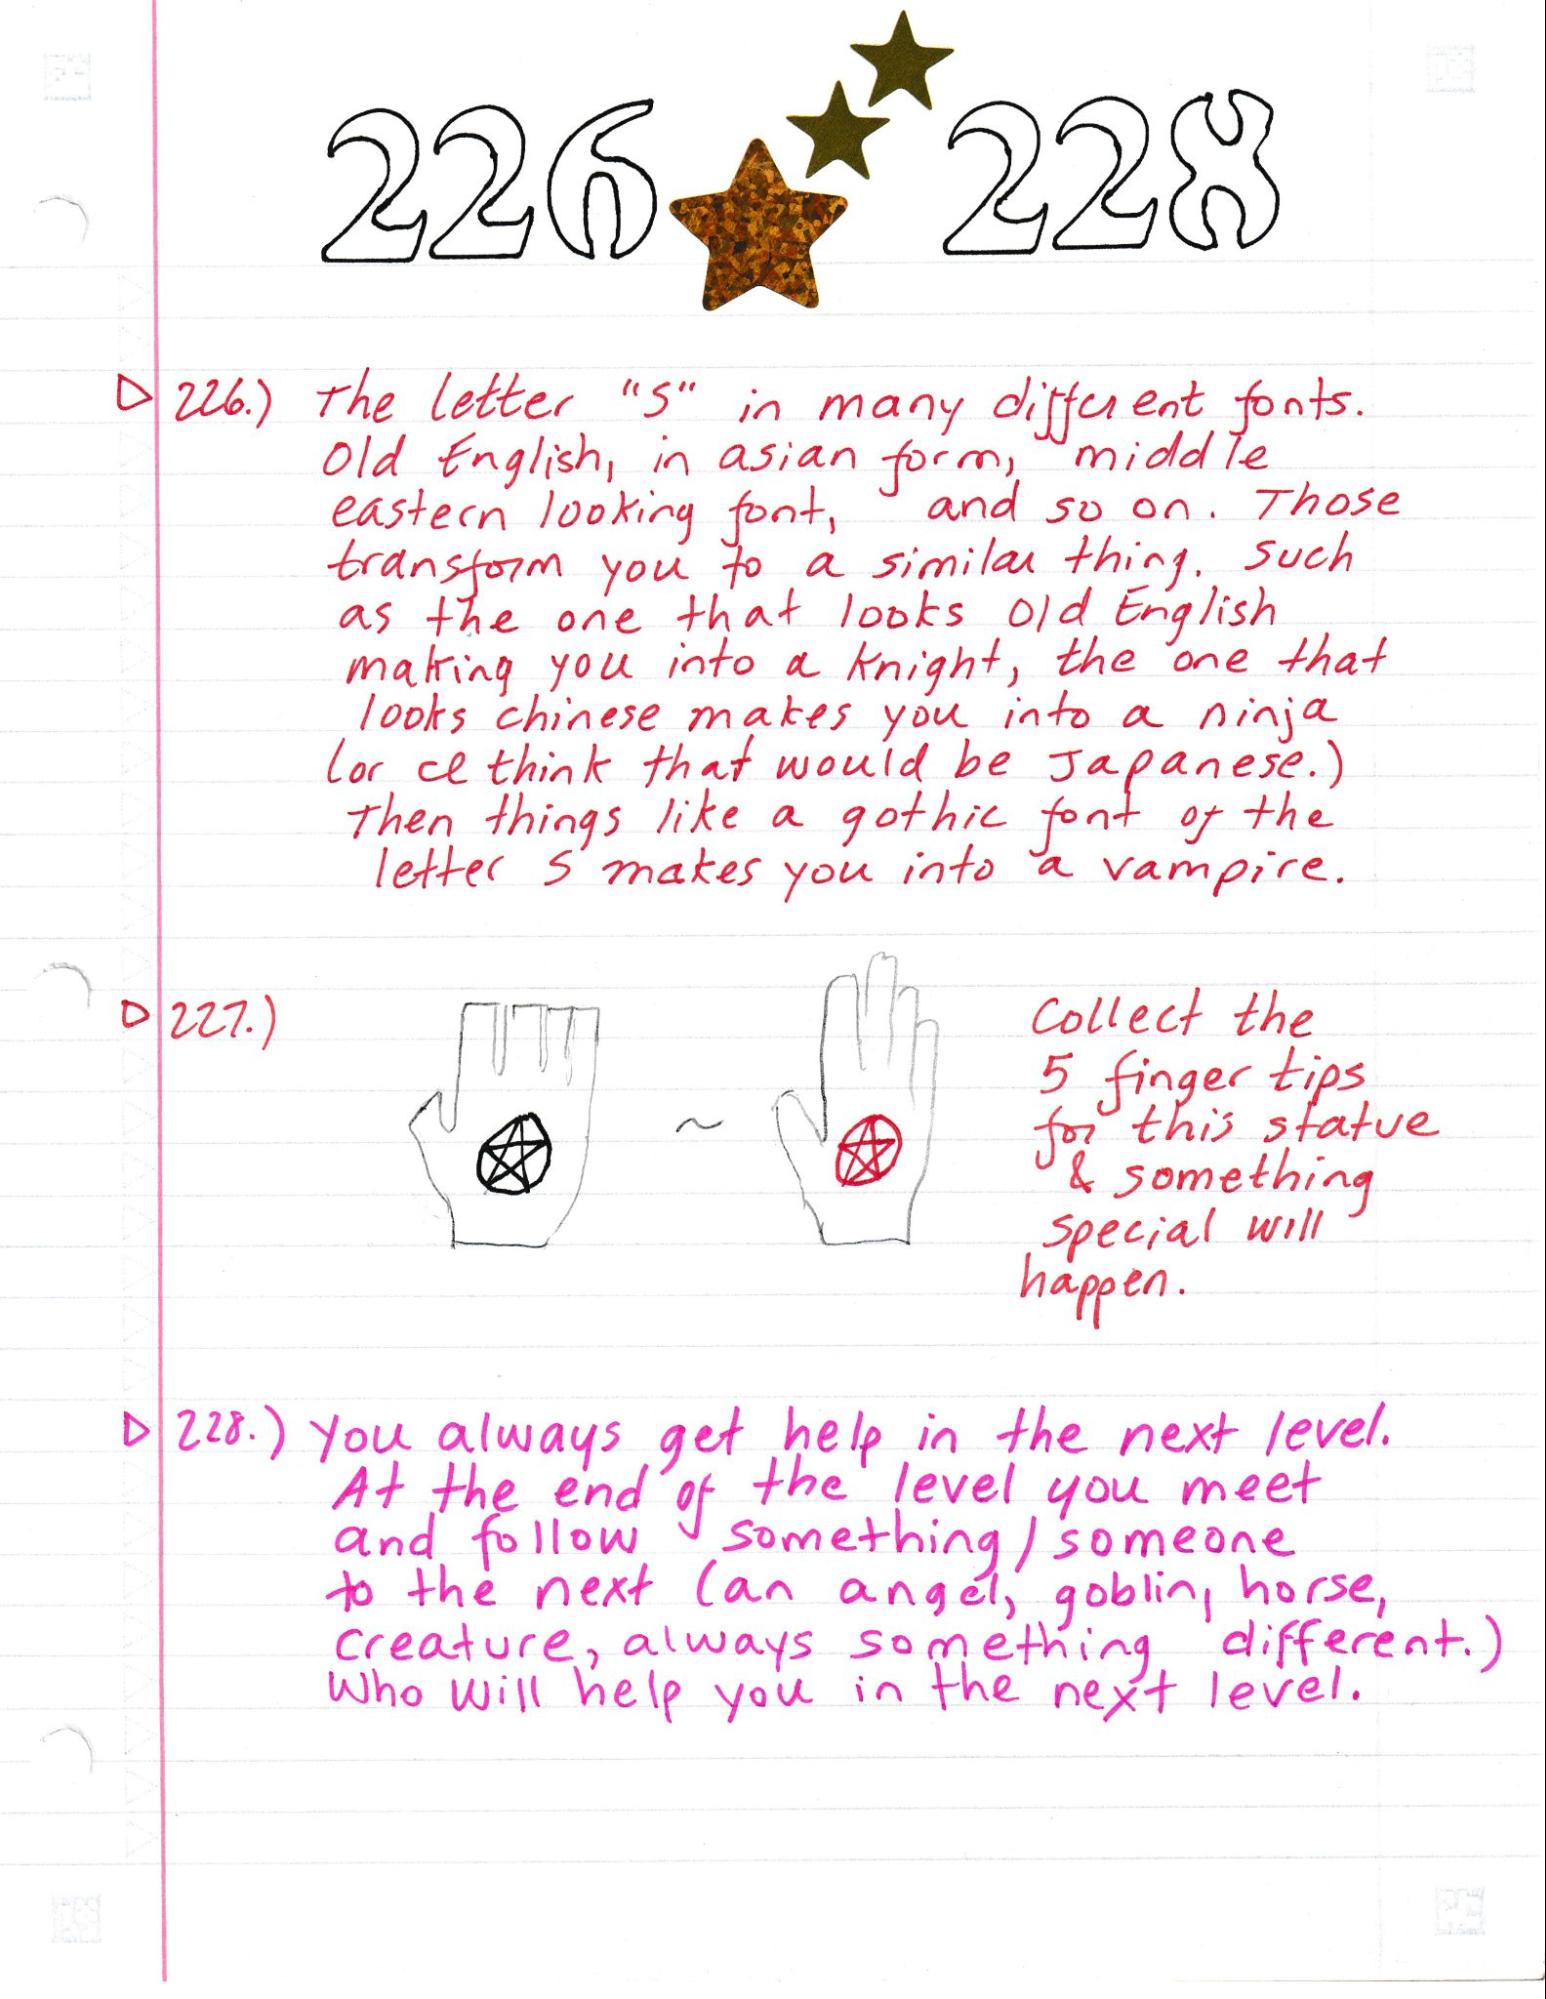 226 228
226.) The letter "S" in many different fonts.
Old English, in asian form, middle
eastern looking font, and so on. Those
transform you to a similar thing. Such
as the one that looks Old English
making you into a knight, the one that
looks chinese makes you into a ninja
(or I think that would be Japanese.)
Then things like a gothic font of the
letter S makes you into a vampire.
227.)
~
Collect the
5 finger tips
for this statue
& something
special will
happen.
228.) You always get help in the next level.
At the end of the level you meet
and follow something/someone
to the next (an angel, goblin, horse,
creature, always something different.)
Who will help you in the next level.